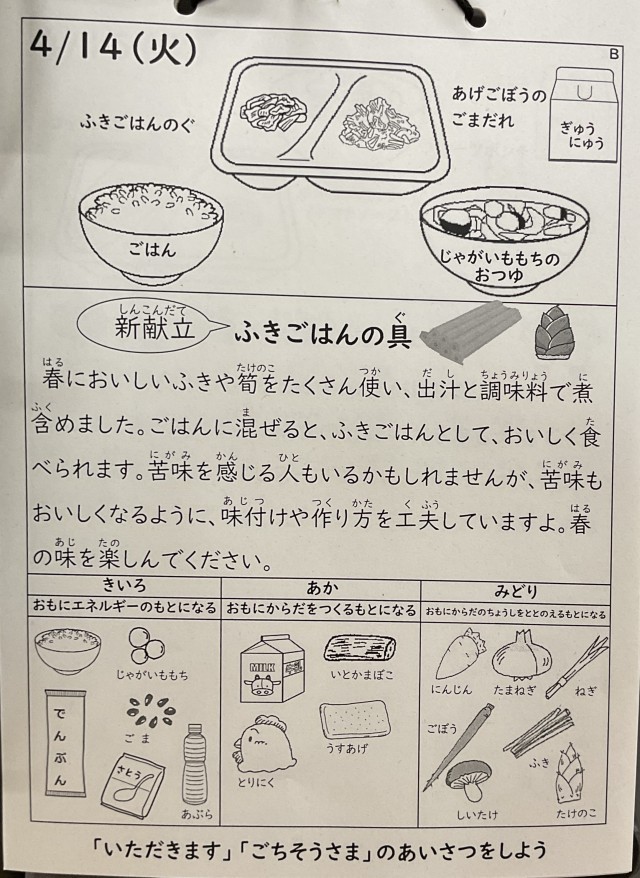 4/14(火)
B
ふきごはんのぐ
あげごぼうの
ごまだれ
ぎゅう
にゅう
ごはん
じゃがいももちの
おつゆ
しんこんだて
新献立
ぐ
ふきごはんの具
はる たけのこ つか だし ちょうみりょう に
春においしいふきや筍をたくさん使い、出汁と調味料で煮
ふく ま た
含めました。ごはんに混ぜると、ふきごはんとして、おいしく食
にがみ かん ひと にがみ
べられます。苦味を感じる人もいるかもしれませんが、苦味も
あじつ つく かた くふう はる
おいしくなるように、味付けや作り方を工夫していますよ。春
あじ たの
の味を楽しんでください。
きいろ
おもにエネルギーのもとになる
あか
おもにからだをつくるもとになる
みどり
おもにからだのちょうしをととのえるもとになる
じゃがいももち
でんぷん
ごま
さとう
あぶら
MILK
いとかまぼこ
とりにく
うすあげ
にんじん
たまねぎ
ねぎ
ごぼう
ふき
しいたけ
たけのこ
「いただきます」「ごちそうさま」のあいさつをしよう